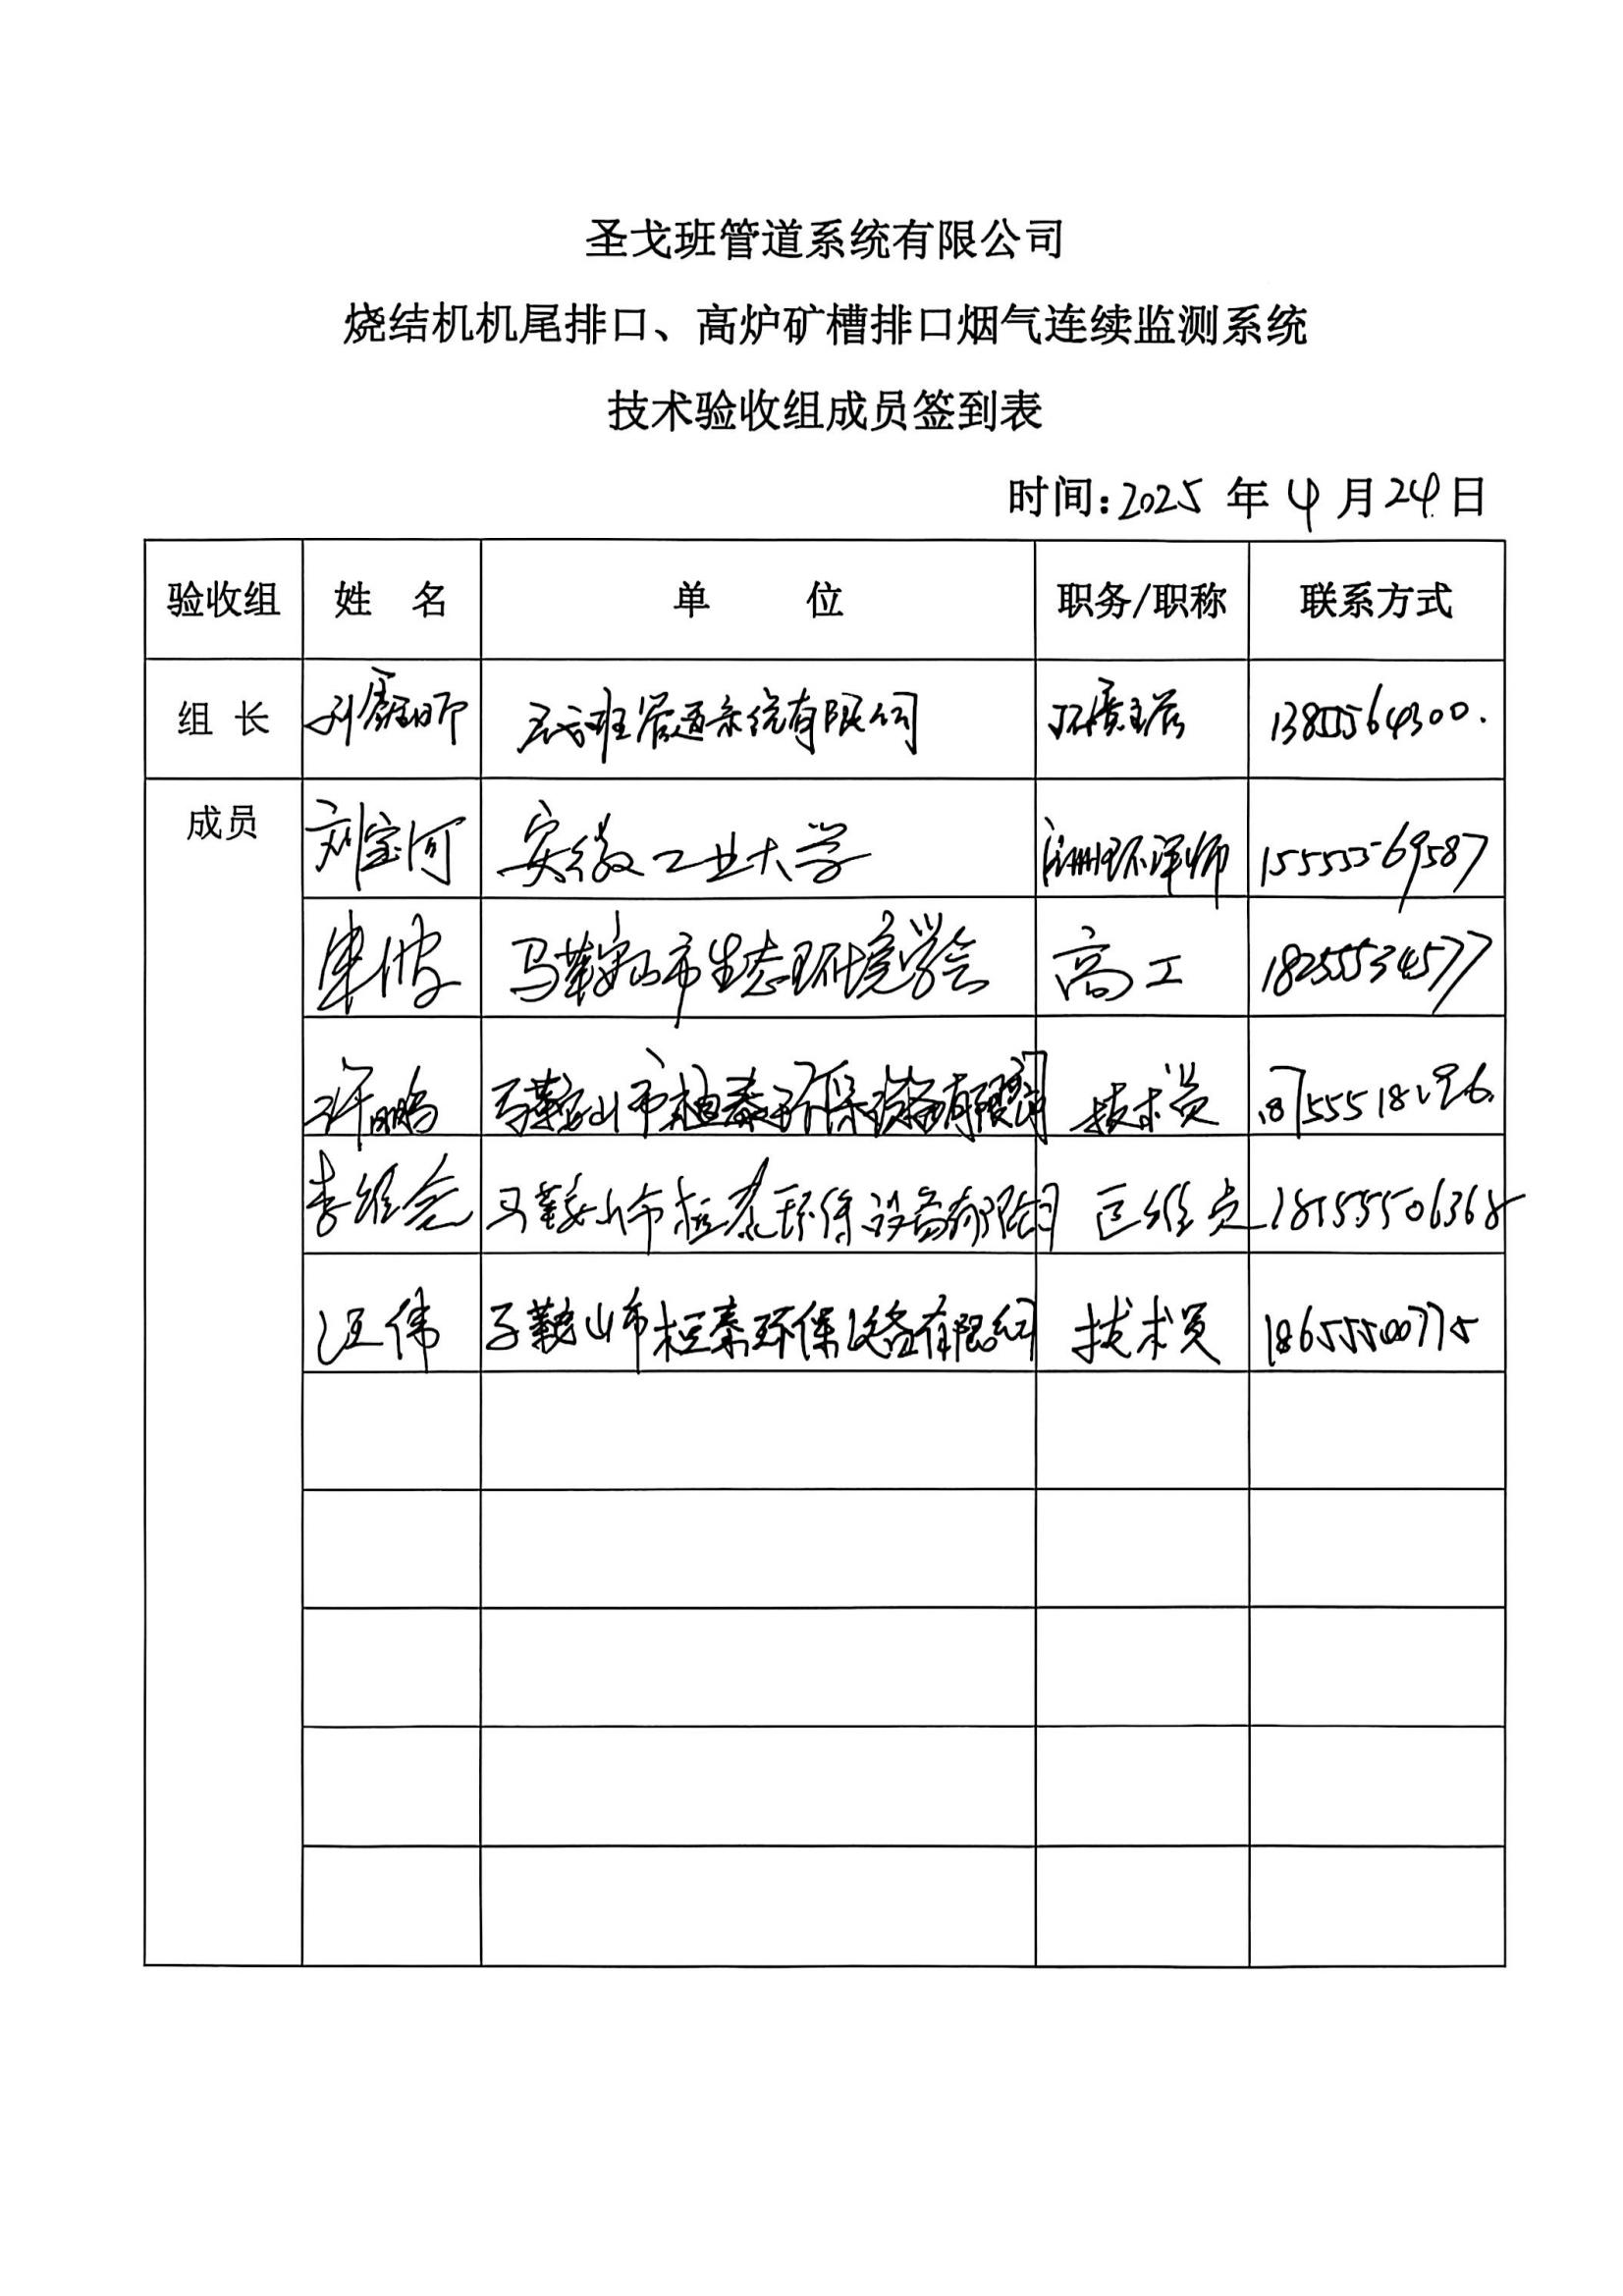 圣戈班管道系统有限公司
烧结机机尾排口、高炉矿槽排口烟气连续监测系统
技术验收组成员签到表
时间:2025 年 4 月 24 日
验收组 姓 名 单 位 职务/职称 联系方式
组 长 圣戈班管道系统有限公司
成员 刘宝河 安徽工业大学 注册环评师 15555569587
马鞍山市生态环境学会 高工 18255534577
许鹏 马鞍山市桓泰环保设备有限公司 技术员
李维念 马鞍山市桓泰环保设备有限公司 运维员 18155506368
汪伟 马鞍山市桓泰环保设备有限公司 技术员 18655500775